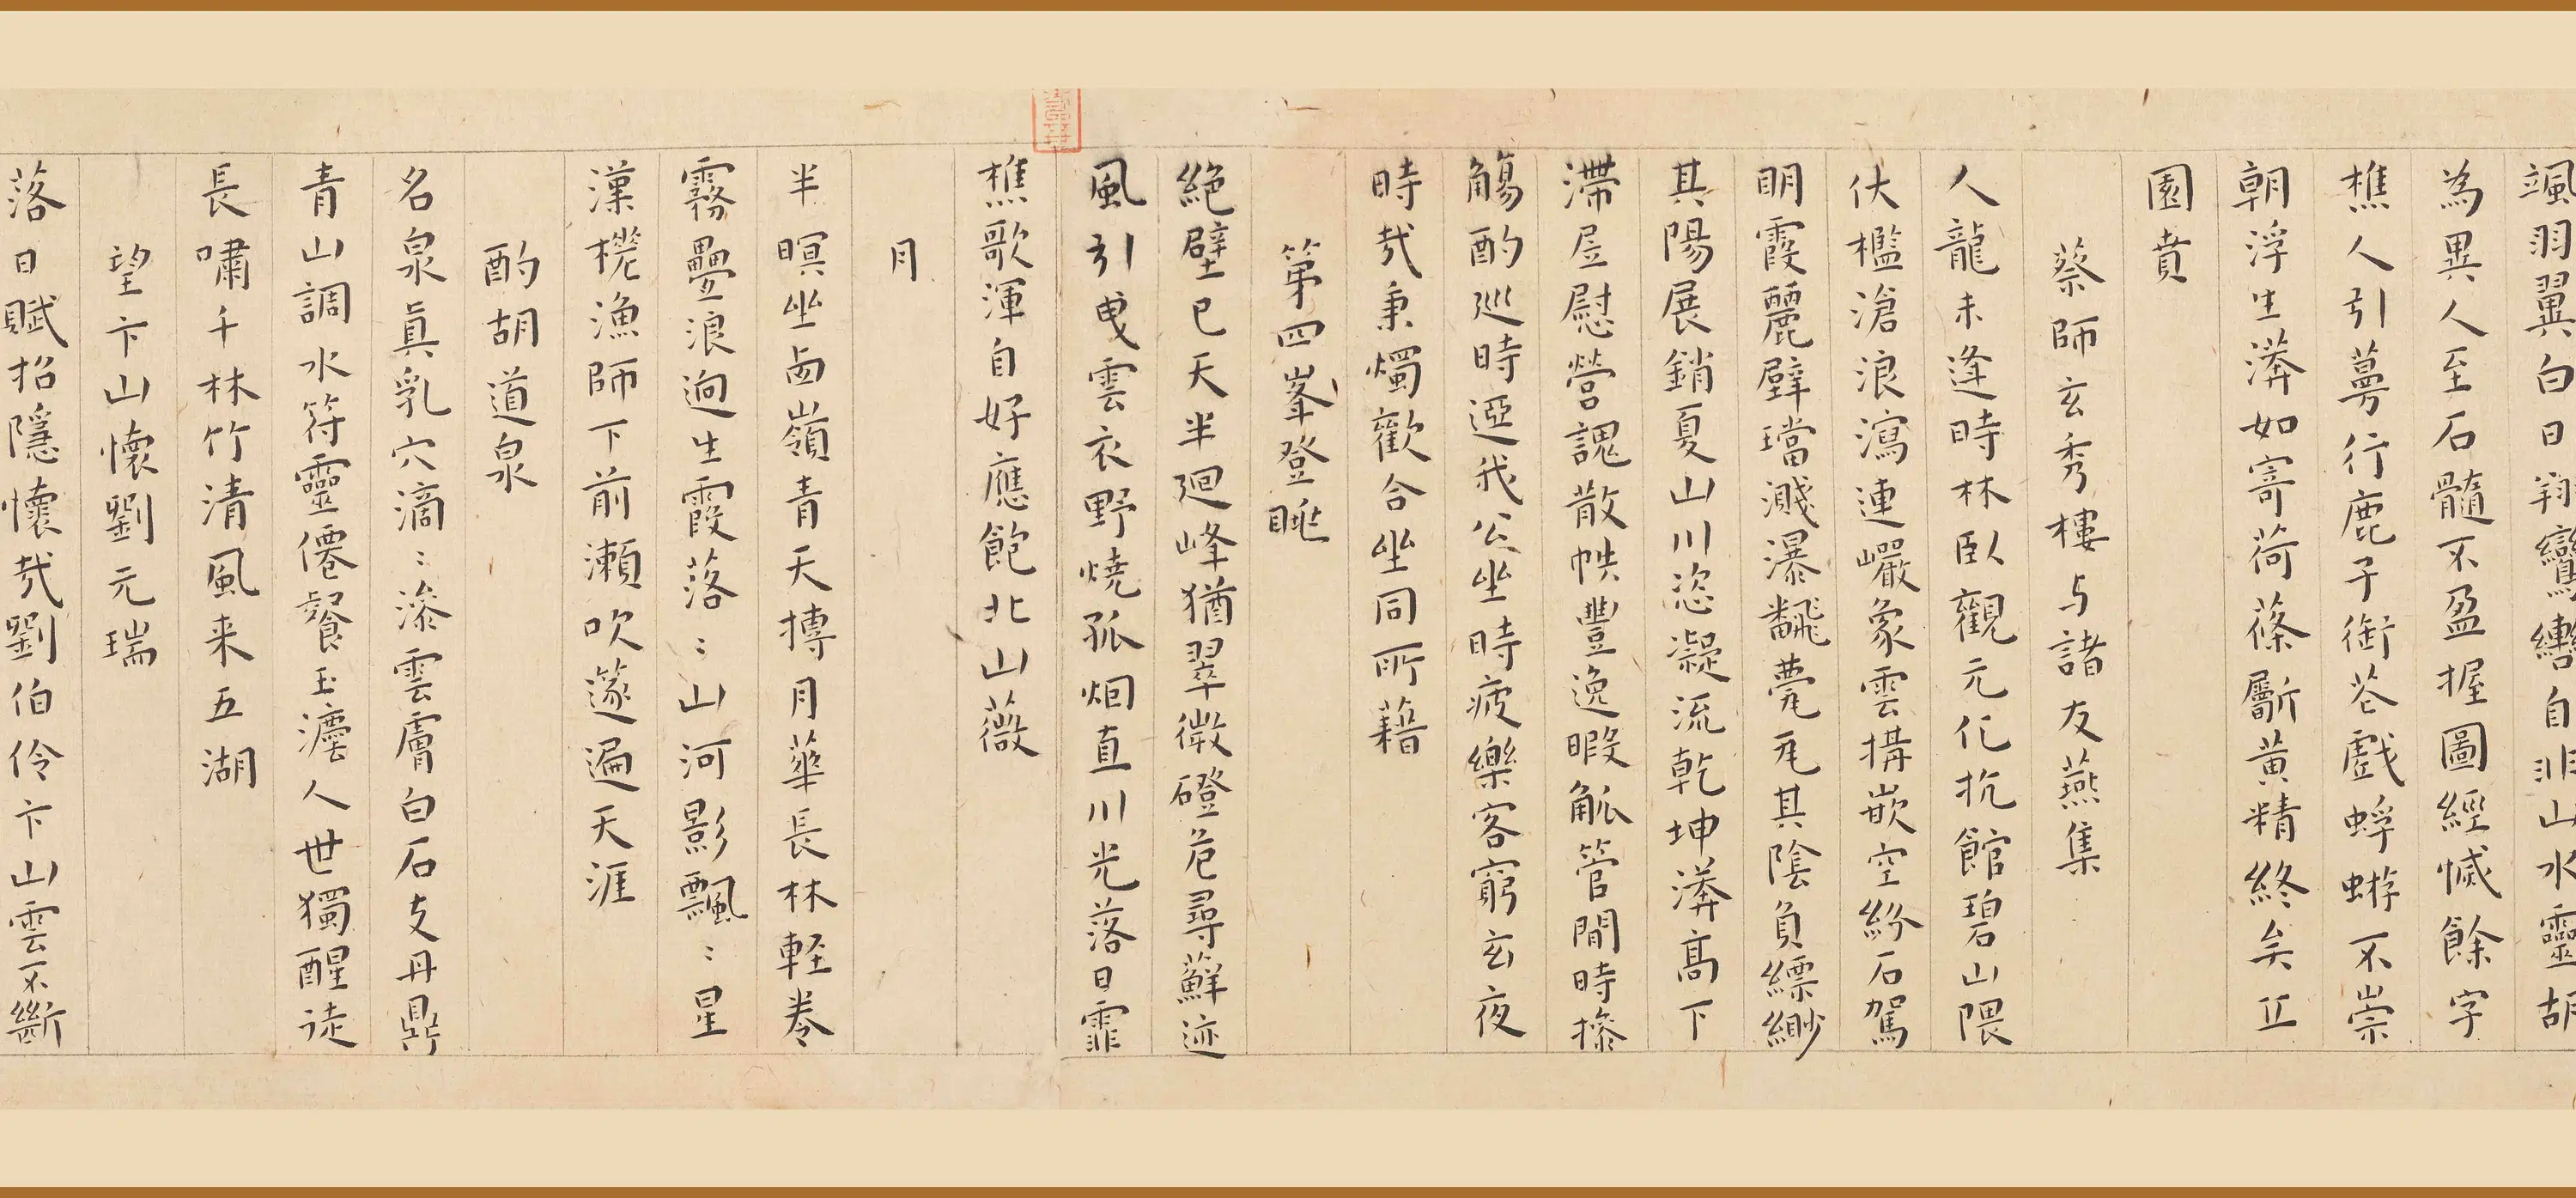 颯羽翼白日翔鸞轡自非山水靈胡
為異人至石髓不盈握圖經慽餘字
樵人引蕚行鹿子銜苍戲蜉蝣不崇
朝浮生漭如寄荷蓧斸黃精終矣丘
園賁
蔡師玄秀樓与諸友燕集
人龍未逢時林臥觀元化抗館碧山隈
伏檻滄浪瀉連巘象雲搆嵌空紛石駕
明霞麗壁璫濺瀑飜甍瓦其陰負縹緲
其陽展銷夏山川恣凝流乾坤漭高下
滯居慰營謵散帙豐逸暇觚管閒時操
觴酌巡時迓我公坐時疲樂客窮玄夜
時哉秉燭歡合坐同所藉
第四峯登眺
絕壁已天半廻峰猶翠微磴危尋蘚迹
風引曳雲衣野燒孤烟直川光落日霏
樵歌渾自好應飽北山薇
月
半暝坐西嶺青天摶月華長林輕捲
霧疊浪逈生霞落〻山河影飄〻星
漢槎漁師下前瀨吹邃遍天涯
酌胡道泉
名泉真乳穴滴〻滲雲膚白石支丹鼎
青山調水符靈僊餐玉瀣人世獨醒徒
長嘯千林竹清風来五湖
望卞山懷劉元瑞
落日賦招隱懷哉劉伯伶卞山雲不斷